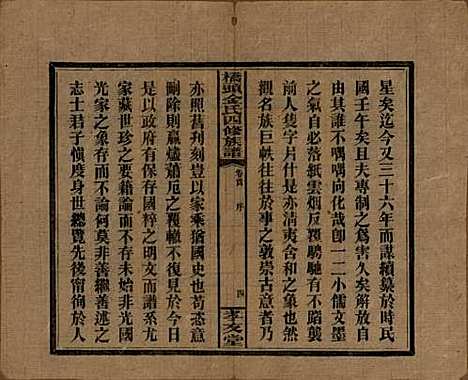 星矣迄今又三十六年而謀續纂於時民
國壬午矣且夫專制之為害久矣解放自
由誰不喁喁向化哉卽一二小儒文墨
之氣自必落紙雲烟反騁馳有不蹈襲
人隻字片什是亦清夷舍和之象也然
觀名族巨帙往往於事之敦崇古意者乃
橋頭金氏四修族譜
卷首 序
四
孝友堂
亦照舊刋刻豈以家乘猶國史也苟恣意
刪除則嬴燼蕭卮之覆轍不復見於今日
以上政府有國粹之明文而譜系尤
家藏世珍之要籍論而不存始非光國
光家之象存而不論何莫非善繼善述之
志士君子慎度身世總覽先後甯徇於人